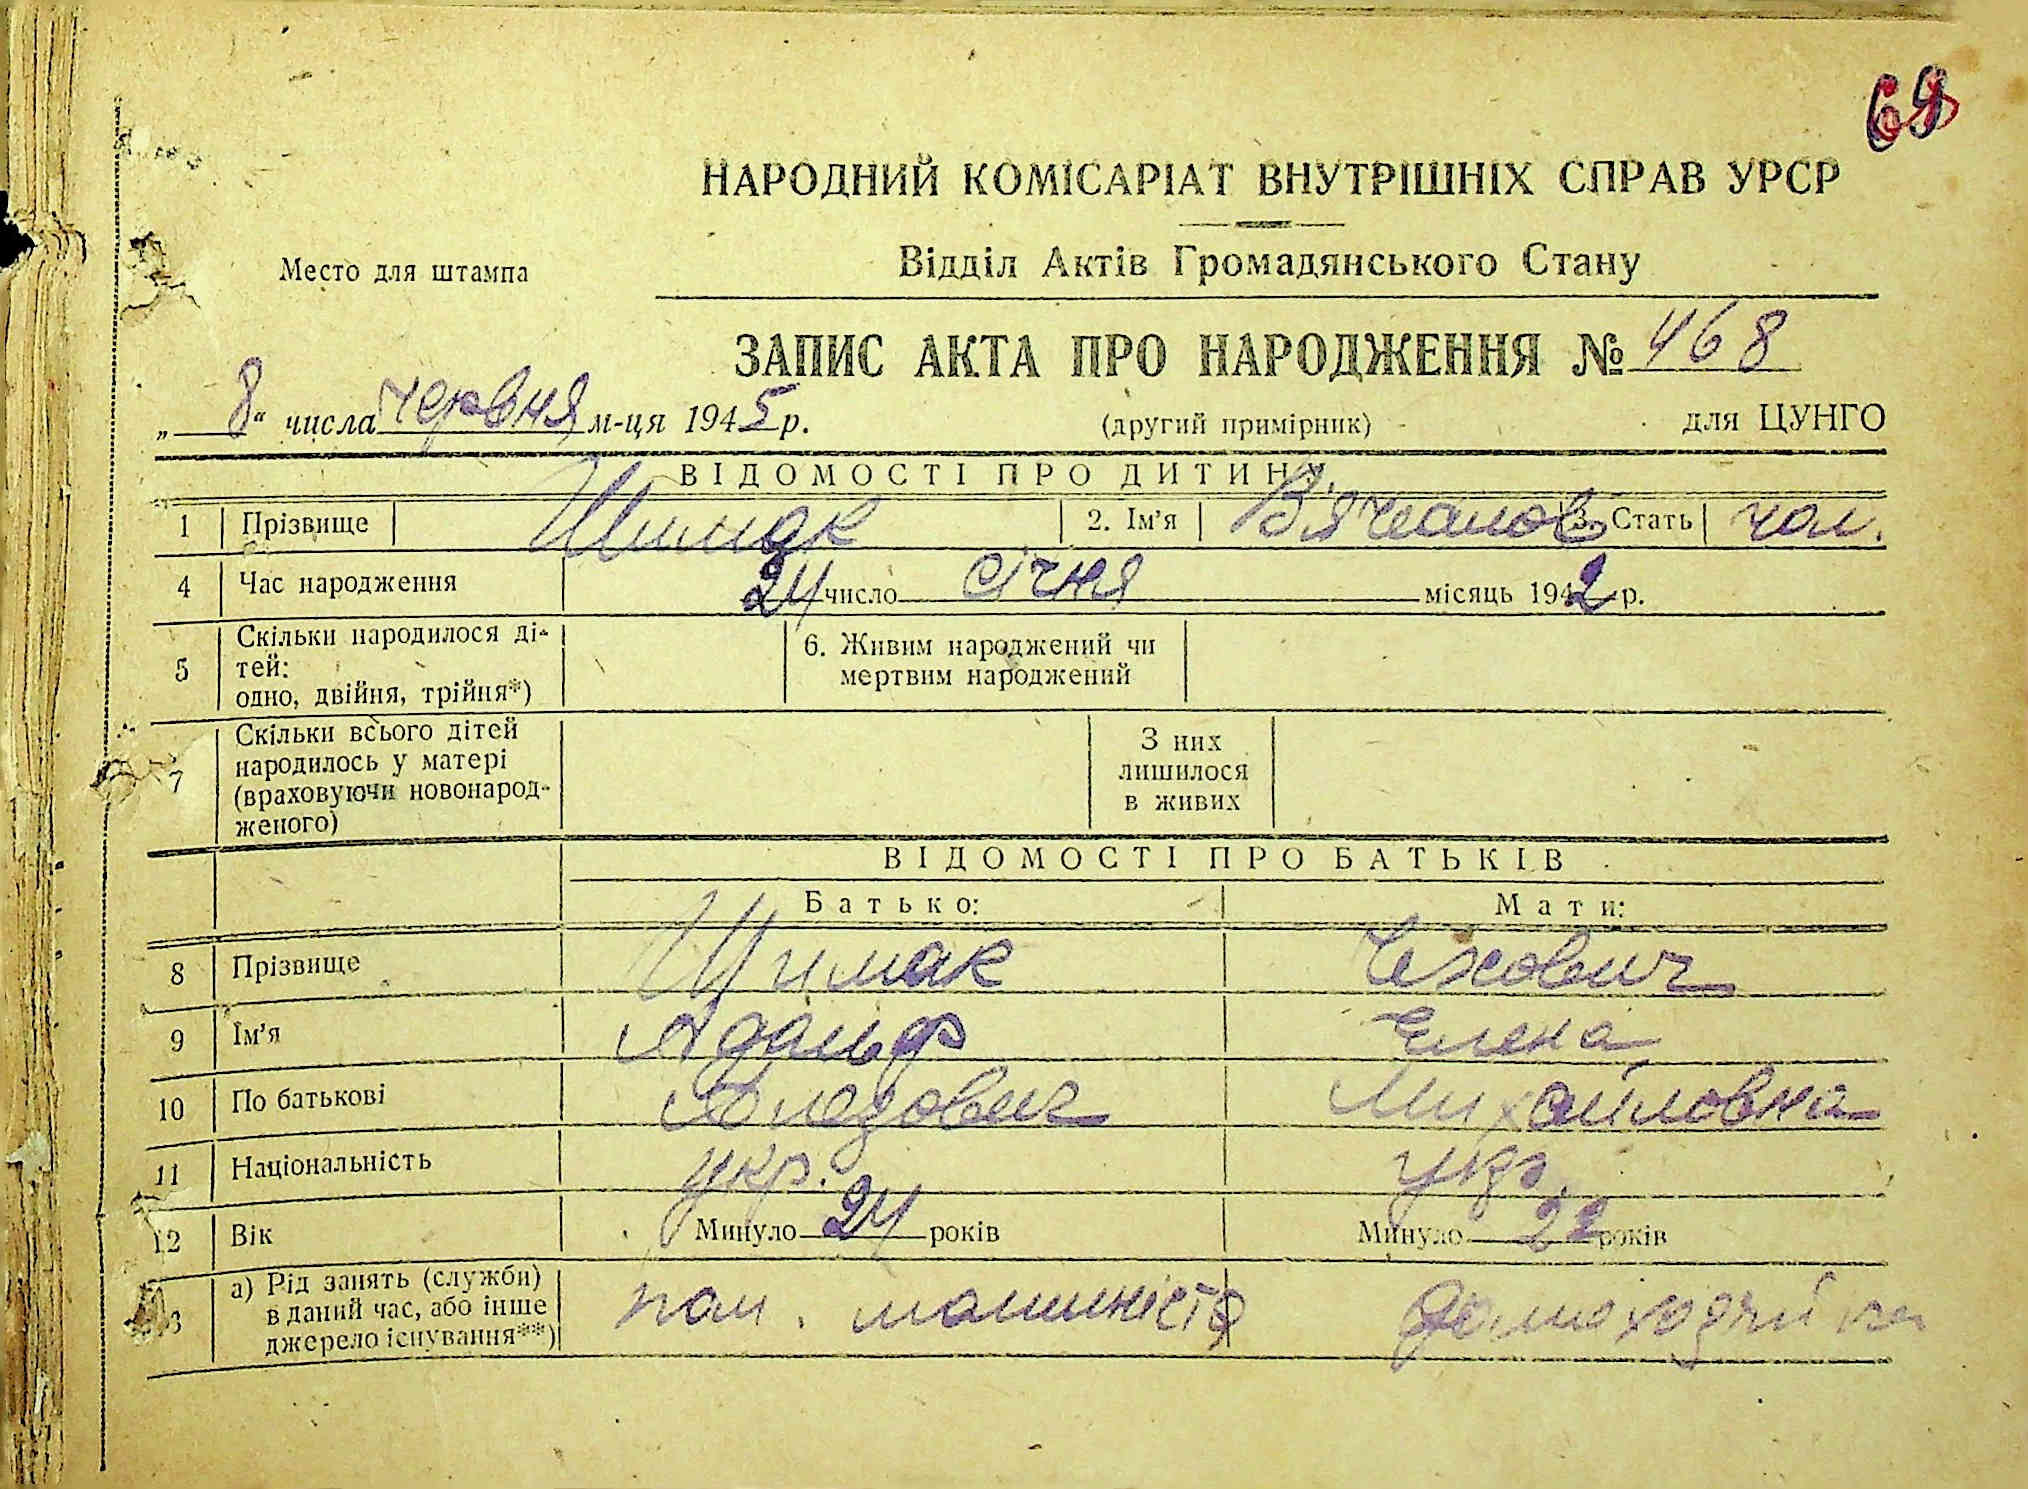 69
НАРОДНИЙ КОМІСАРІАТ ВНУТРІШНІХ СПРАВ УРСР
Место для штампа
Відділ Актів Громадянського Стану
ЗАПИС АКТА ПРО НАРОДЖЕННЯ № 468
„ 8 “ числа червня м-ця 1945 р. (другий примірник) для ЦУНГО
ВІДОМОСТІ ПРО ДИТИНУ
1 Прізвище Шимак 2. Ім'я В'ячеслов 3. Стать чол.
4 Час народження 24 число січня місяць 1942 р.
5 Скільки народилося ді-
тей:
одно, двійня, трійня*)
6. Живим народжений чи
мертвим народжений
7 Скільки всього дітей
народилось у матері
(враховуючи новонарод-
женого)
З них
лишилося
в живих
ВІДОМОСТІ ПРО БАТЬКІВ
Батько: Мати:
8 Прізвище Шимак Чехович
9 Ім'я Адольф Елена
10 По батькові Михайловна
11 Національність укр. укр.
12 Вік Минуло 24 років Минуло 22 років
13 а) Рід занять (служби)
в даний час, або інше
джерело існування**)
пом. машиніста домохозяйка